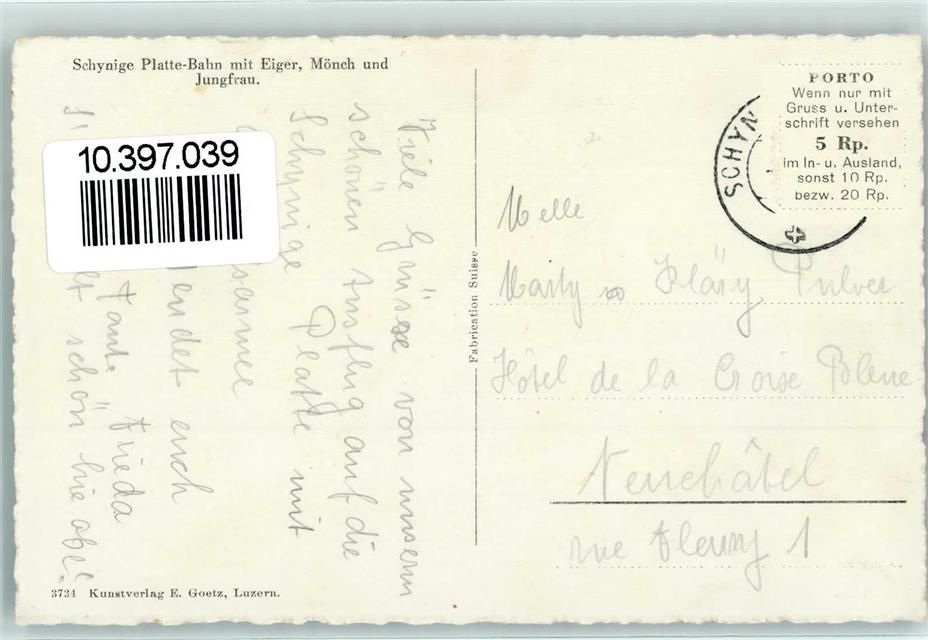 Schynige Platte-Bahn mit Eiger, Mönch und
Jungfrau.
10.397.039
Viele Grüsse von unserm
schönen Ausflug auf die
Schynige Platte mit
endet euch
Tante Frieda
schön hie obe!
3734 Kunstverlag E. Goetz, Luzern.
Fabrication Suisse
SCHYN
PORTO
Wenn nur mit
Gruss u. Unter-
schrift versehen
5 Rp.
im In- u. Ausland,
sonst 10 Rp.
bezw. 20 Rp.
Melle
Marty Kläry Pulver
Hôtel de la Croise Bleue
Neuchâtel
rue Fleury 1